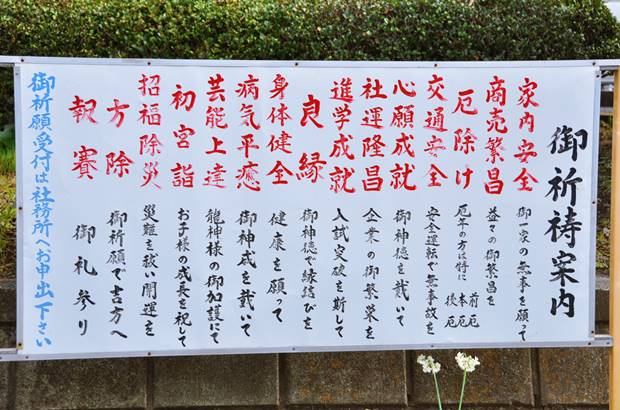 御祈祷案内
家内安全 御一家の無事を願って
商売繁昌 益々の御繁昌を
厄除け 厄年の方は特に 前厄 本厄 後厄
交通安全 安全運転で無事故を
心願成就 御神徳を戴いて
社運隆昌 企業の御繁栄を
進学成就 入試突破を期して
良縁 御神徳で縁結びを
身体健全 健康を願って
病気平癒 御神威を戴いて
芸能上達 龍神様の御加護にて
初宮詣 お子様の成長を祝して
招福除災 災難を祓い開運を
方除 御祈願で吉方へ
報賽 御礼参り
御祈願受付は社務所へお申出下さい